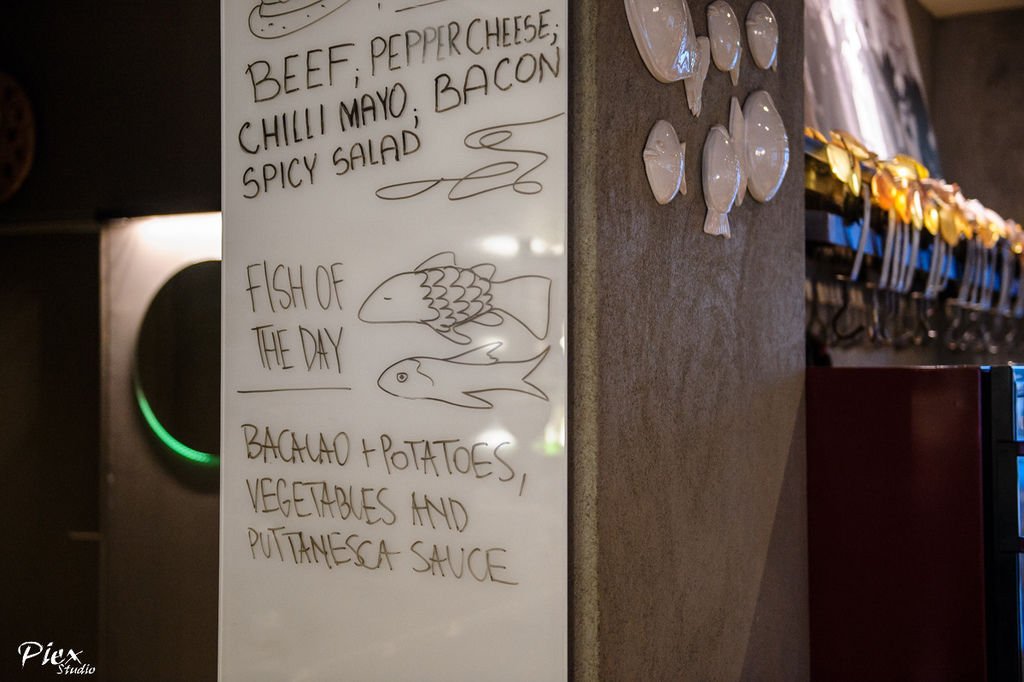 BEEF; PEPPER CHEESE;
CHILLI MAYO; BACON
SPICY SALAD
FISH OF
THE DAY
BACALAO + POTATOES,
VEGETABLES AND
PUTTANESCA SAUCE
Piex
Studio